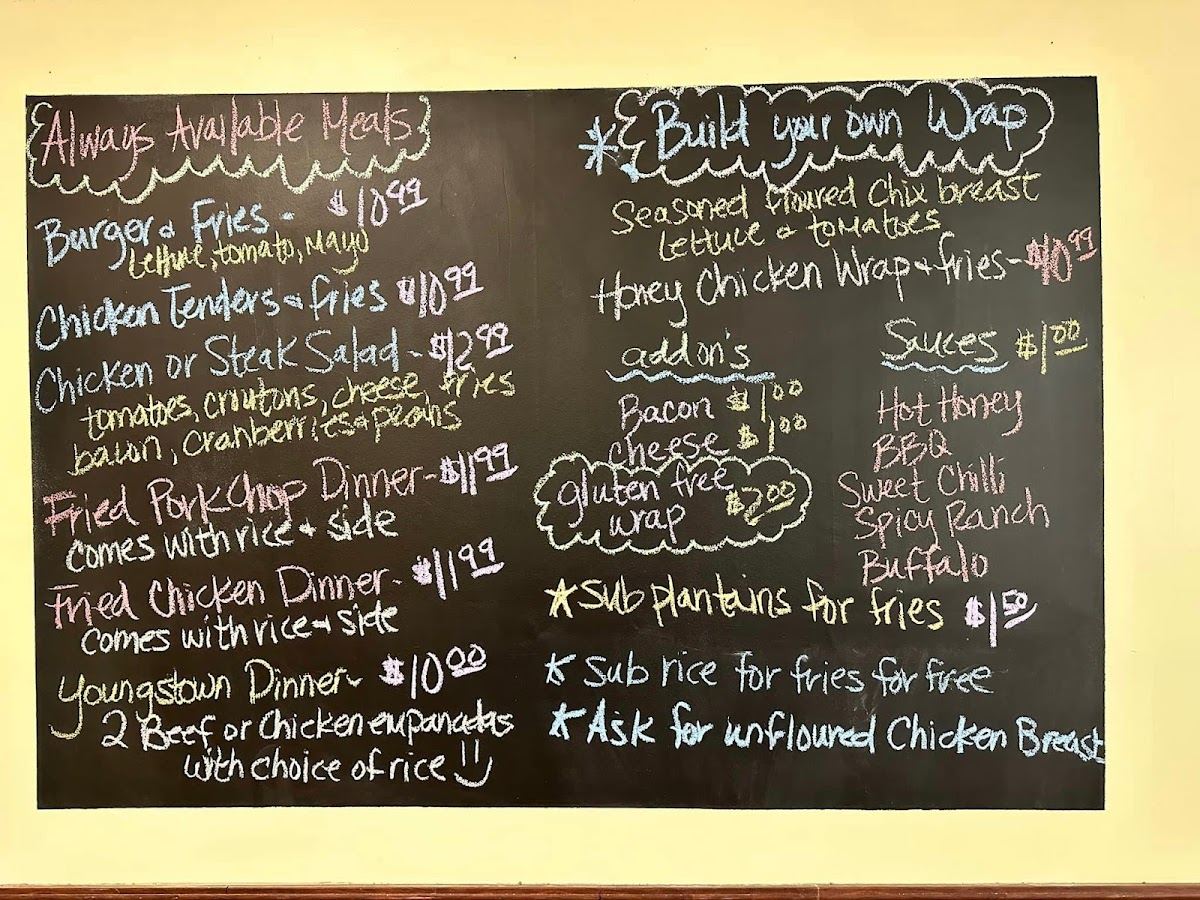 Always Available Meals
Burger & Fries - $10.99
lettuce, tomato, Mayo
Chicken Tenders & fries $10.99
Chicken or Steak Salad - $12.99
tomatoes, croutons, cheese, fries
bacon, cranberries & pecans
Fried Pork Chop Dinner - $11.99
comes with rice & side
Fried Chicken Dinner - $11.99
comes with rice & side
Youngstown Dinner - $10.00
2 Beef or Chicken empanadas
with choice of rice
* Build your own Wrap
Seasoned floured Chix breast
lettuce & tomatoes
Honey Chicken Wrap & fries - $10.99
add on's
Bacon $1.00
cheese $1.00
gluten free
wrap $2.00
Sauces $1.00
Hot Honey
BBQ
Sweet Chilli
Spicy Ranch
Buffalo
* Sub plantains for fries $1.50
* Sub rice for fries for free
* Ask for unfloured Chicken Breast